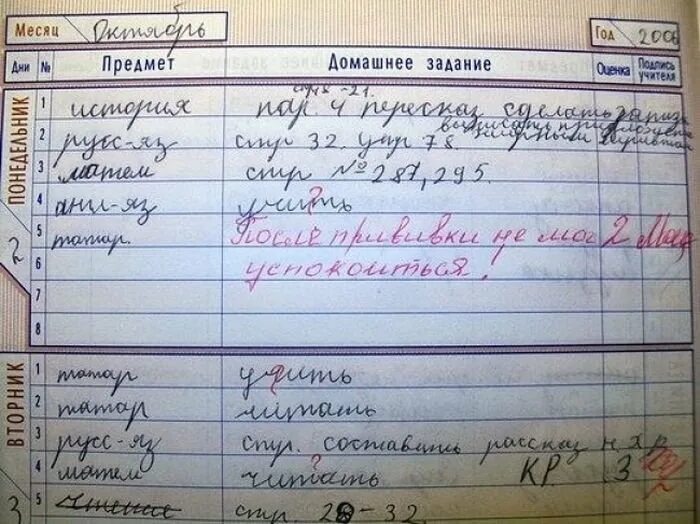 Месяц Октябрь Год 2006
Дни № Предмет Домашнее задание Оценка Подпись учителя
ПОНЕДЕЛЬНИК 2
стр 18-21.
1 история пар. 4 пересказ сделать
2 русс-яз стр 32. упр 78
3 матем стр № 287, 295.
4 анг-яз учить ?
5 татар. После прививки не мог 2
6 успокоиться!
7
8
ВТОРНИК 3
1 татар учить
2 татар читать
3 русс-яз стр. составить рассказ н х р
4 матем читать ? КР 3 2
5 чтение стр. 28-32.